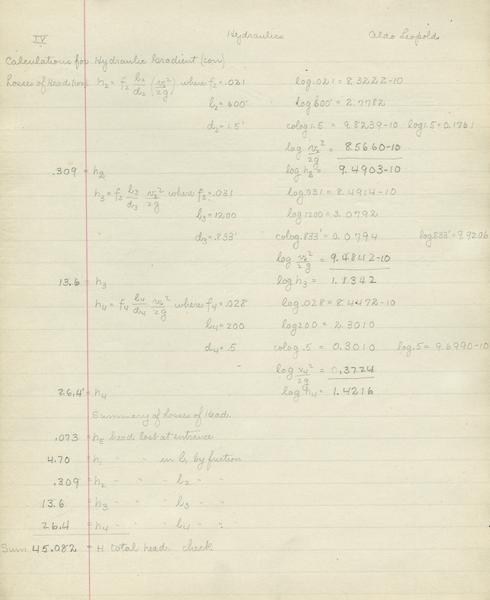 IV Hydraulics Aldo Leopold
Calculations for Hydraulic Gradient (con)
Losses of Head (con) h₂ = f₂ l₂/d₂ (v₂²/2g) where f₂ = .021 log .021 = 8.3222-10
l₂ = 600' log 600' = 2.7782
d₂ = 1.5' colog 1.5 = 9.8239-10 log 1.5 = 0.1761
log v₂²/2g = 8.5660-10
.309 = h₂ log h₂ = 9.4903-10
h₃ = f₃ l₃/d₃ v₃²/2g where f₃ = .031 log .031 = 8.4914-10
l₃ = 1200 log 1200 = 3.0792
d₃ = .833' colog .833' = 0.0794 log 833' = 9.9206
log v₃²/2g = 9.4842-10
13.6 = h₃ log h₃ = 1.1342
h₄ = f₄ l₄/d₄ v₄²/2g where f₄ = .028 log .028 = 8.4472-10
l₄ = 200 log 200 = 2.3010
d₄ = .5 colog .5 = 0.3010 log .5 = 9.6990-10
log v₄²/2g = 0.3724
26.4' = h₄ log h₄ = 1.4216
Summary of Losses of Head.
.073 = hE head lost at entrance
4.70 = h₁ " " in l₁ by friction
.309 = h₂ " " " l₂ " "
13.6 = h₃ " " " l₃ " "
26.4 = h₄ " " " l₄ " "
Sum 45.082 = H total head check